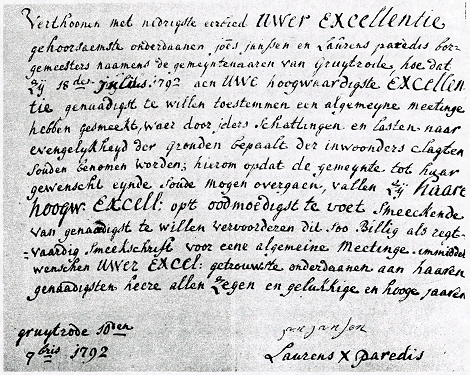 Verthoonen met nedrigste eerbied UWER EXCELLENTIE
gehoorsaemste onderdaanen, joës janssen en Laurens paredis bor-
gemeesters naamens de gemeyntenaaren van gruytrode, hoe dat
zij 18 des julius 1792 aen UWE hoogwaardigste EXCELLEN
tie genaudigst te willen toestemmen een algemeyne meetinge
hebben gesmeekt, waer door jders schattingen en lasten naar
evengelykheyd der gronden bepaalt der inwoonders clagten
souden benomen worden; hierom opdat de gemeynte tot haar
gewenscht eynde soude mogen overgaen, vallen zij haare
hoogw: EXCELL: opt oodmoedigst te voet smeeckende
van genaadigst te willen vervoorderen dit soo Billig als regt-
vaardig smeekschrift voor eene algemeine Meetinge. immiddels
wenschen UWER EXCEL: getrouwste onderdaanen aan haaren
genaadigsten heere allen zegen en geluckige en hooge jaaren
gruytrode 10den
9bris 1792
joes jansen
Laurens X paredis